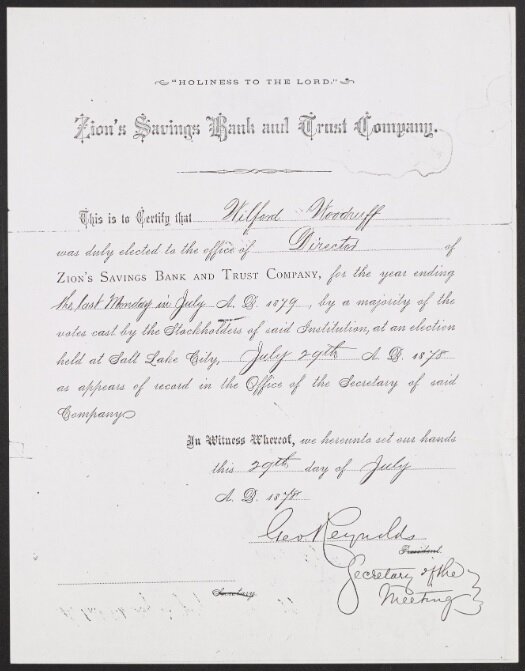 "HOLINESS TO THE LORD."
Zion's Savings Bank and Trust Company.
This is to Certify that Wilford Woodruff
was duly elected to the office of Director of
ZION'S SAVINGS BANK AND TRUST COMPANY, for the year ending
the last Monday in July A. D. 1879, by a majority of the
votes cast by the Stockholders of said Institution, at an election
held at Salt Lake City, July 29th A. D. 1878
as appears of record in the Office of the Secretary of said
Company
In Witness Whereof, we hereunto set our hands
this 29th day of July
A. D. 1878
Geo Reynolds
President.
Secretary of the
Meeting
Secretary.